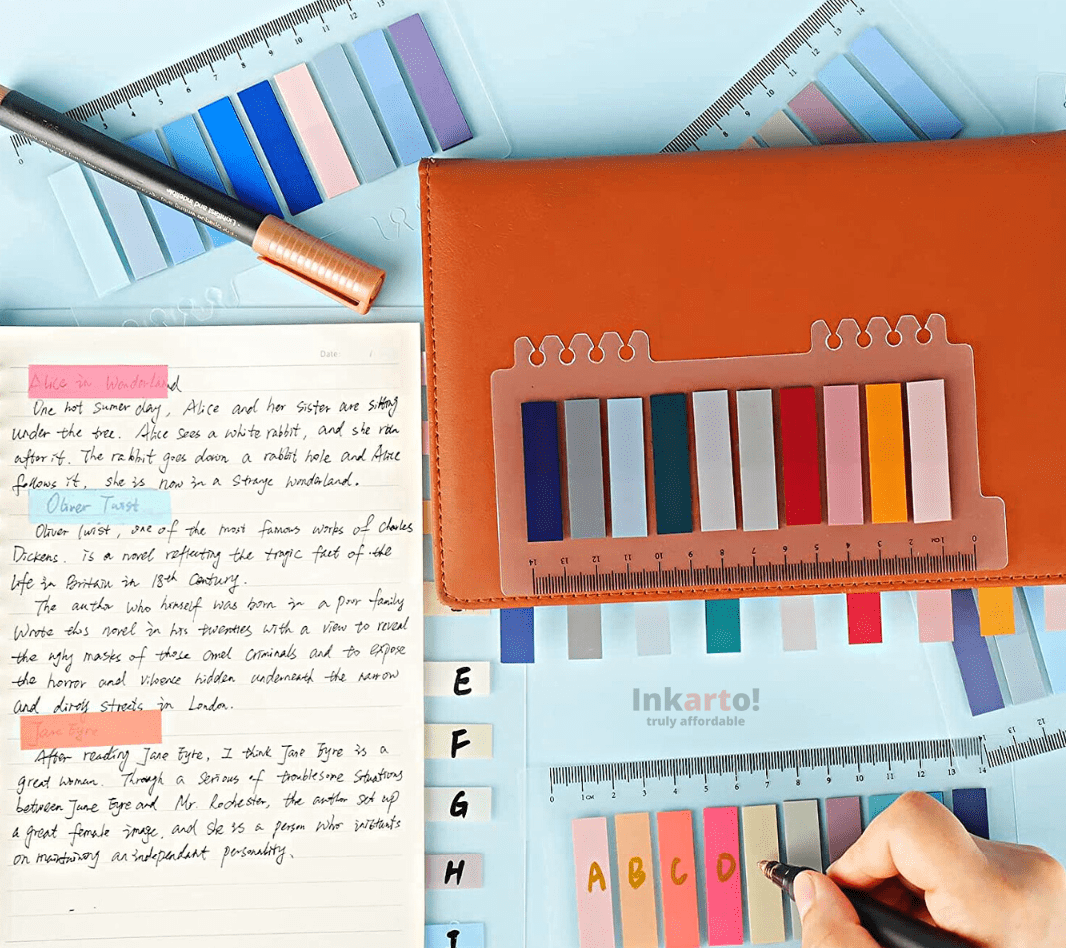 Date: /
Alice in Wonderland
One hot sumer day, Alice and her sister are sitting
under the tree. Alice sees a white rabbit, and she run
after it. The rabbit goes down a rabbit hole and Alice
follows it, she is now in a strange wonderland.
Oliver Twist
Oliver Twist, one of the most famous works of Charles
Dickens. is a novel reflecting the tragic fact of the
life in Britain in 18th Century.
The author who himself was born in a poor family
Wrote this novel in his twenties with a view to reveal
the ugly masks of those criminals and to expose
the horror and hidden underneath the narrow
and streets in London.
Jane Eyre
After reading Jane Eyre, I think Jane Eyre is a
great woman. Through a serious of troublesome situations
between Jane Eyre and Mr. Rochester, the author set up
a great female image, and she is a person who
on an independant personality.
14 13 12 11 10 9 8 7 6 5 4 3 2 1CM 0
E
F
G
H
I
Inkarto!
truly affordable
0 1CM 2 3 4 5 6 7 8 9 10 11 12 13 14
A B C D